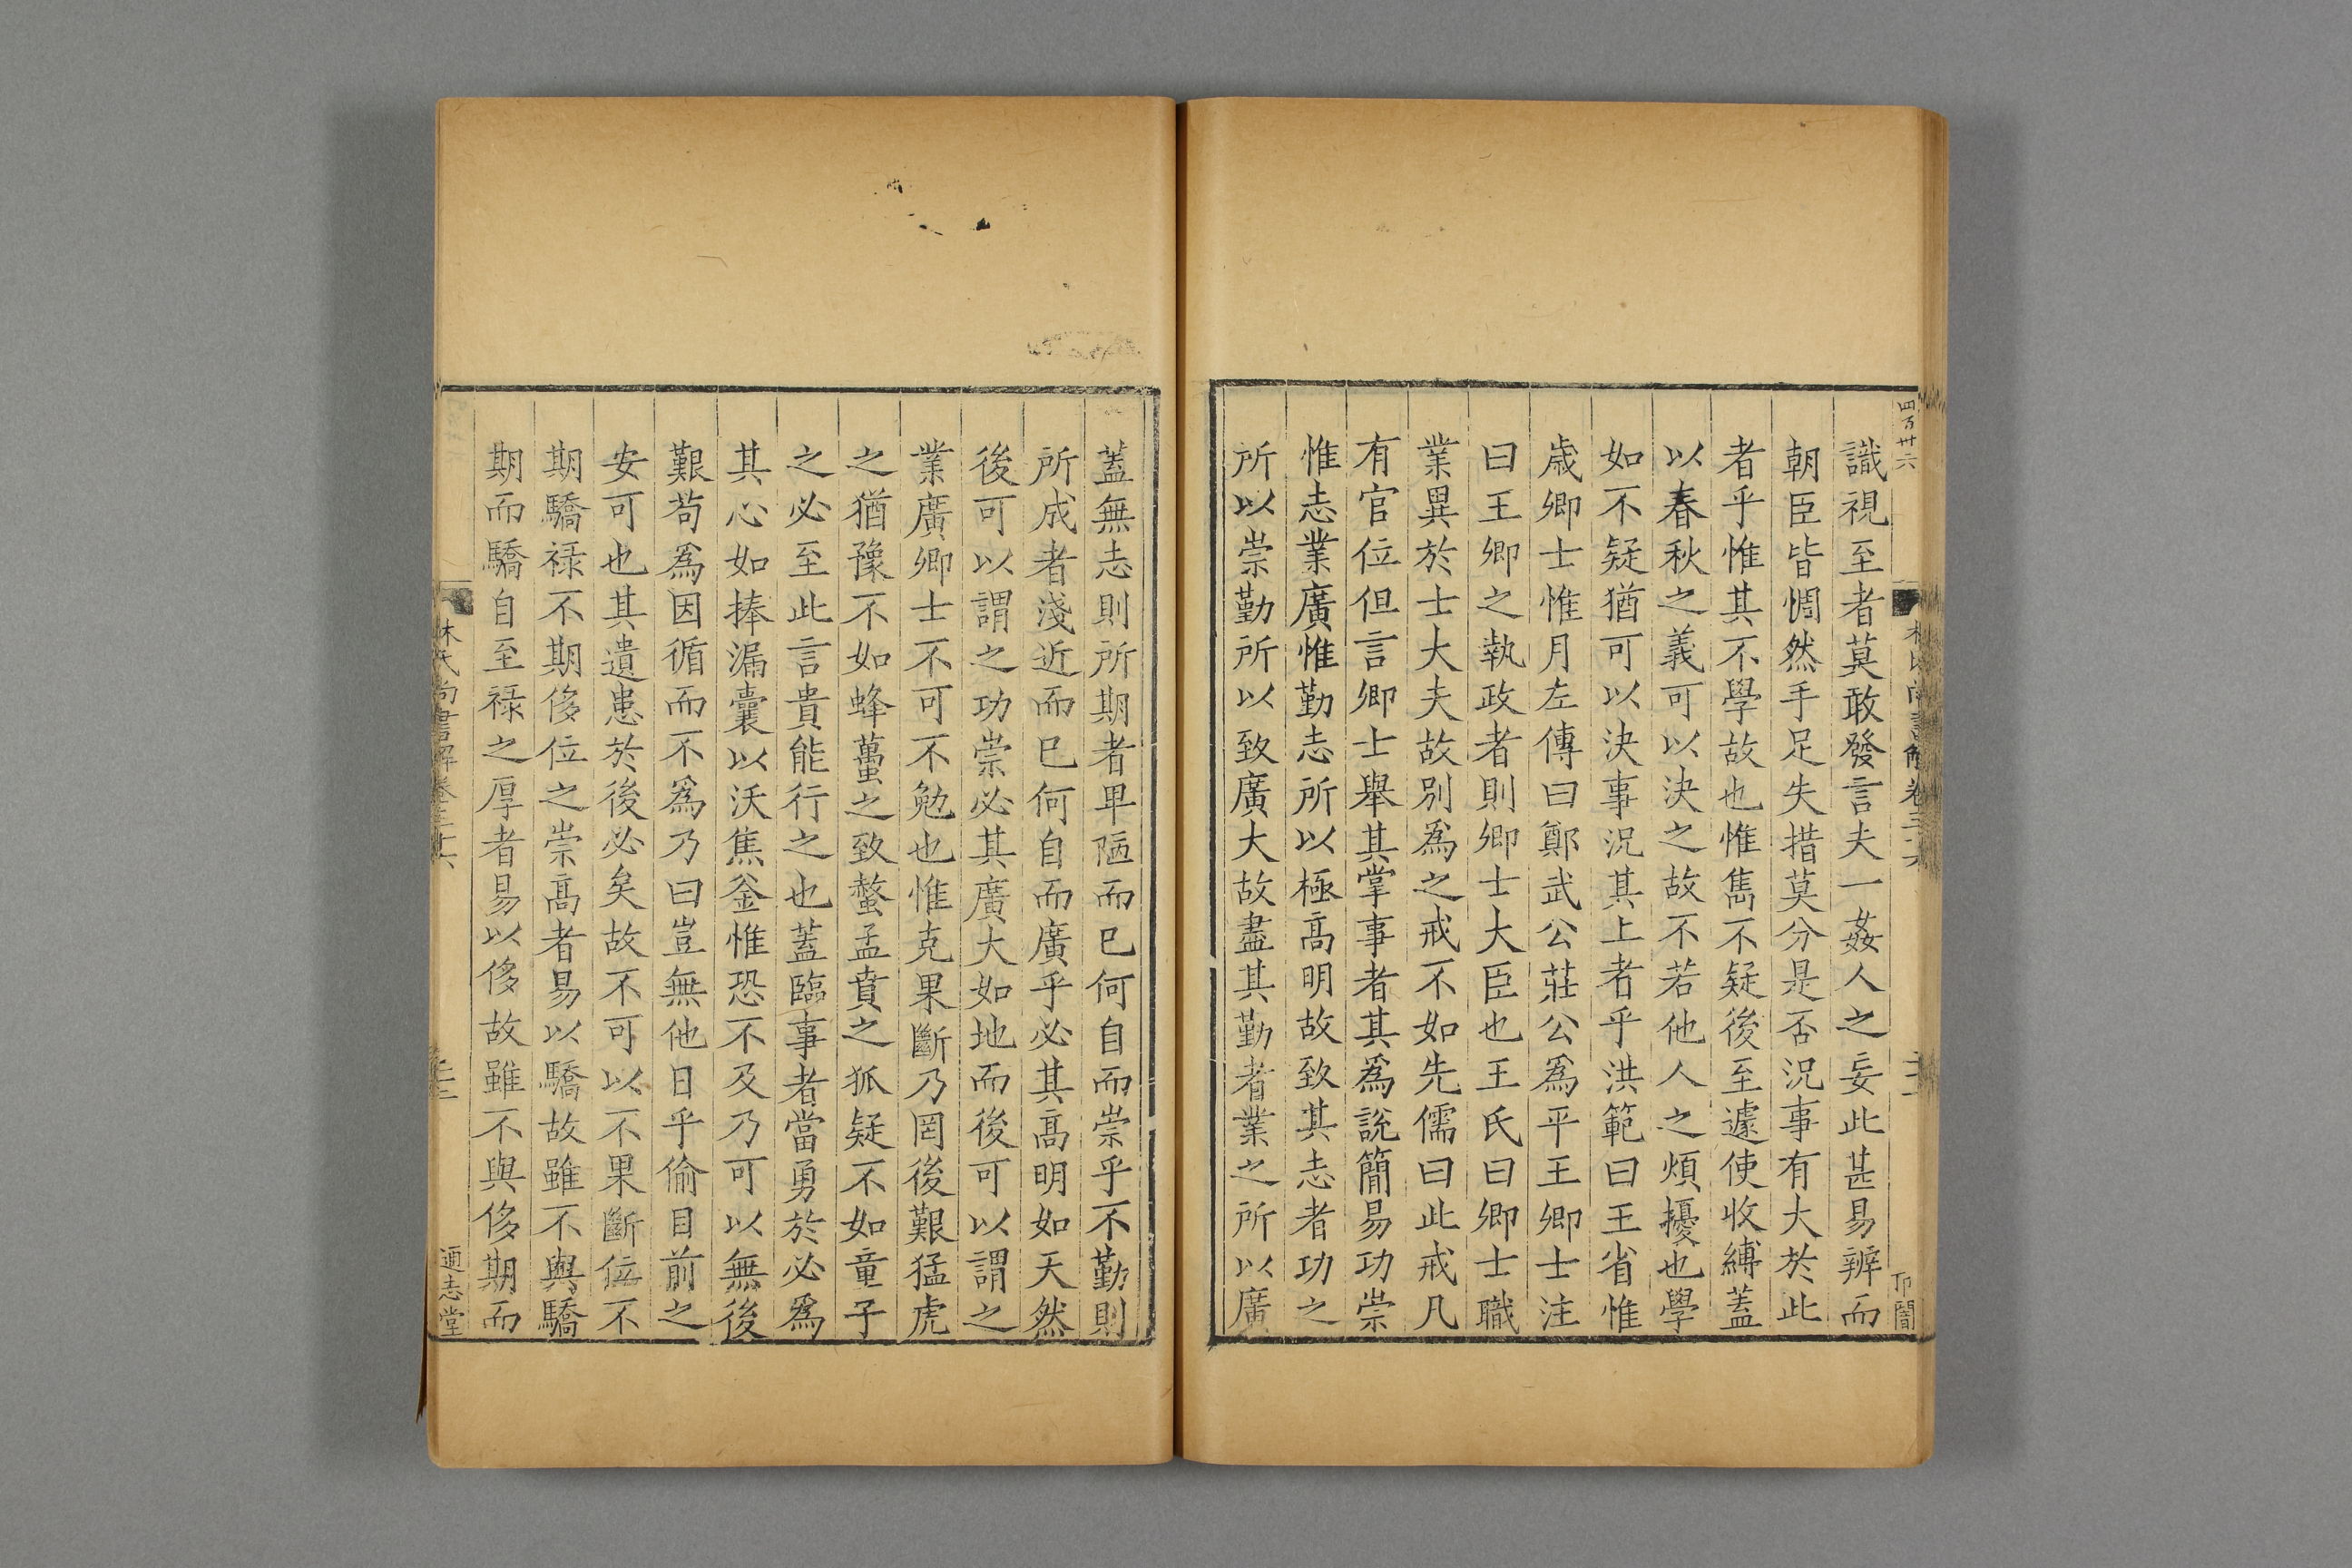 四百廿六
識視至者莫敢發言夫一姦人之妄此甚易辨而
朝臣皆惆然手足失措莫分是否況事有大於此
者乎惟其不學故也惟雋不疑後至遽使收縛蓋
以春秋之義可以決之故不若他人之煩擾也學
如不疑猶可以決事況其上者乎洪範曰王省惟
歲卿士惟月左傳曰鄭武公莊公爲平王卿士注
曰王卿之執政者則卿士大臣也王氏曰卿士職
業異於士大夫故別爲之戒不如先儒曰此戒凡
有官位但言卿士舉其掌事者其爲說簡易功崇
惟志業廣惟勤志所以極高明故致其志者功之
所以崇勤所以致廣大故盡其勤者業之所以廣
蓋無志則所期者卑陋而已何自而崇乎不勤則
所成者淺近而已何自而廣乎必其高明如天然
後可以謂之功崇必其廣大如地而後可以謂之
業廣卿士不可不勉也惟克果斷乃罔後艱猛虎
之猶豫不如蜂蠆之致螫孟賁之狐疑不如童子
之必至此言貴能行之也蓋臨事者當勇於必爲
其心如捧漏囊以沃焦釜惟恐不及乃可以無後
艱苟爲因循而不爲乃曰豈無他日乎偷目前之
安可也其遺患於後必矣故不可以不果斷位不
期驕祿不期侈位之崇高者易以驕故雖不與驕
期而驕自至祿之厚者易以侈故雖不與侈期而
林氏尚書解卷三十六
通志堂